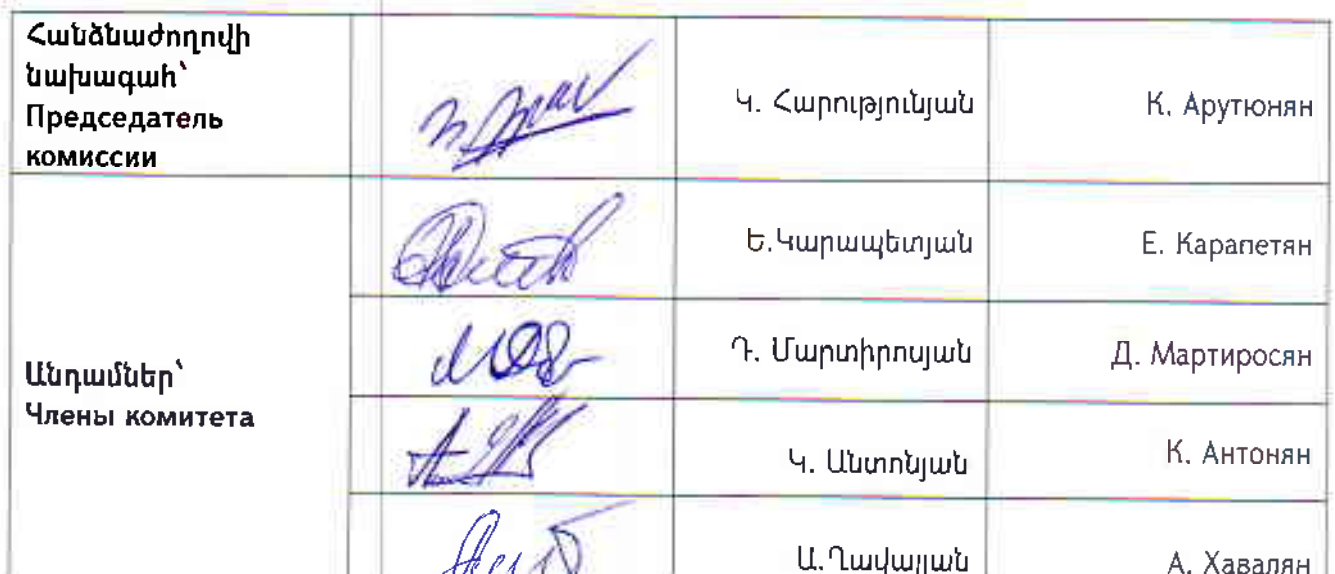 Հանձնաժողովի
նախագահ՝
Председатель
комиссии
Կ. Հարությունյան
К. Арутюнян
Անդամներ՝
Члены комитета
Ե.Կարապետյան
Е. Карапетян
Դ. Մարտիրոսյան
Д. Мартиросян
Կ. Անտոնյան
К. Антонян
Ա.Ղավալյան
А. Хавалян